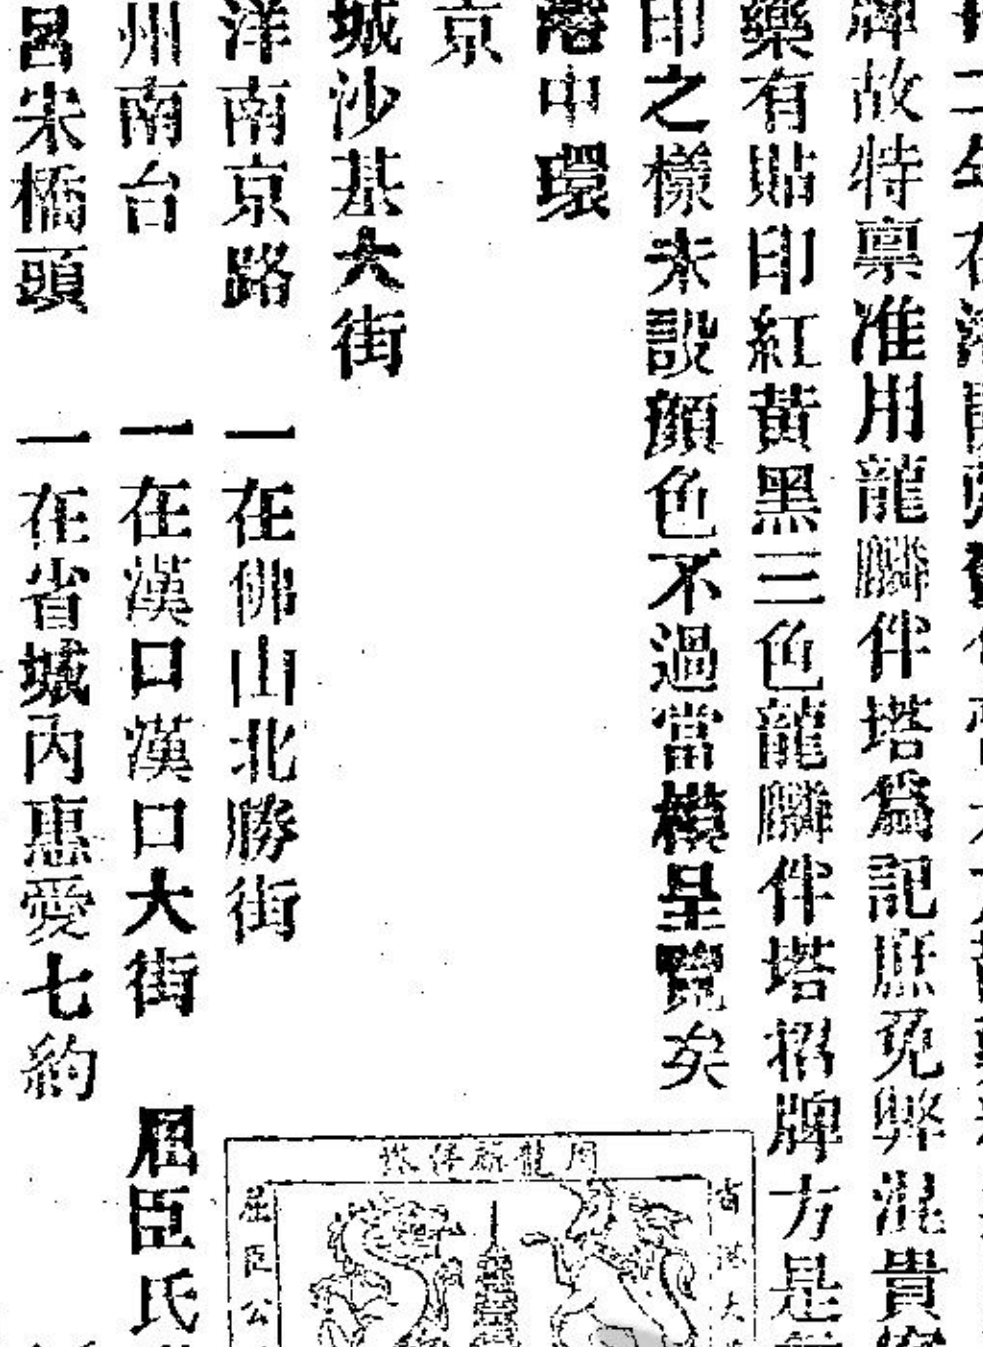 二年在港
牌故特禀准用龍麟伴塔為記庶免弊混貴
藥有貼印紅黃黑三色龍麟伴塔招牌方是
印之樣未設顏色不過當模呈覽矣
港中環
京
城沙基大街
洋南京路 一在佛山北勝街
州南台 一在漢口漢口大街 屈臣氏
昌米橋頭 一在省城內惠愛七約
用龍麟伴
香港大
屈臣公